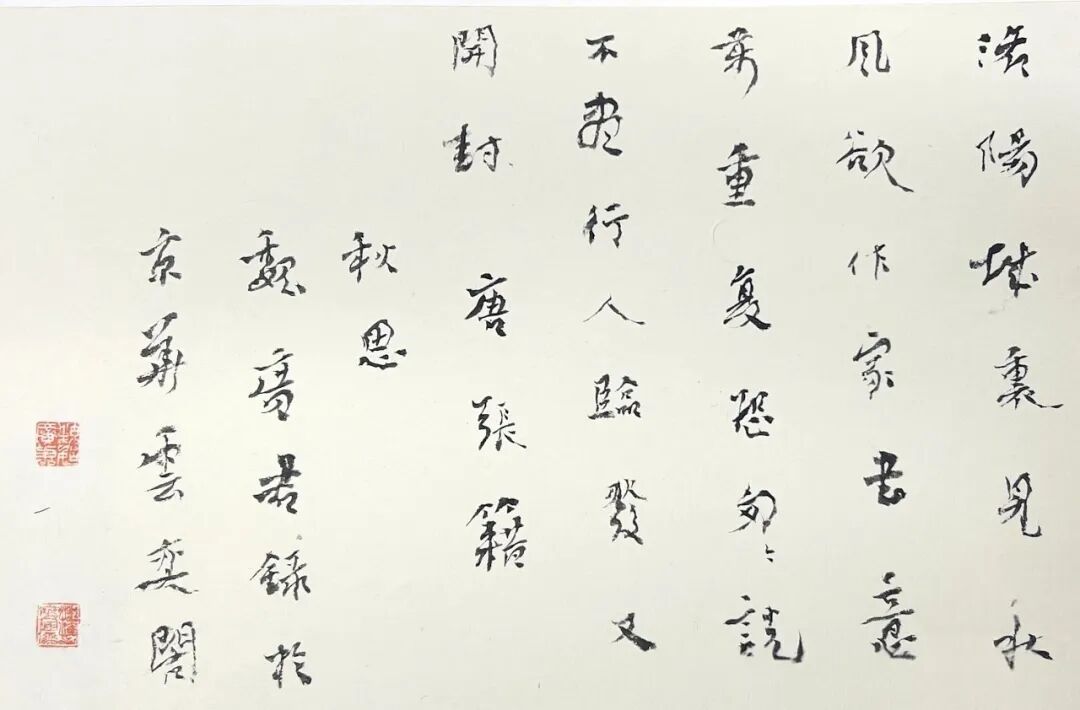 洛陽城裏見秋
風欲作家書意
萬重复恐匆〻說
不盡行人臨發又
開封 唐張籍
秋思
魏君錄於
京華雲奕閣